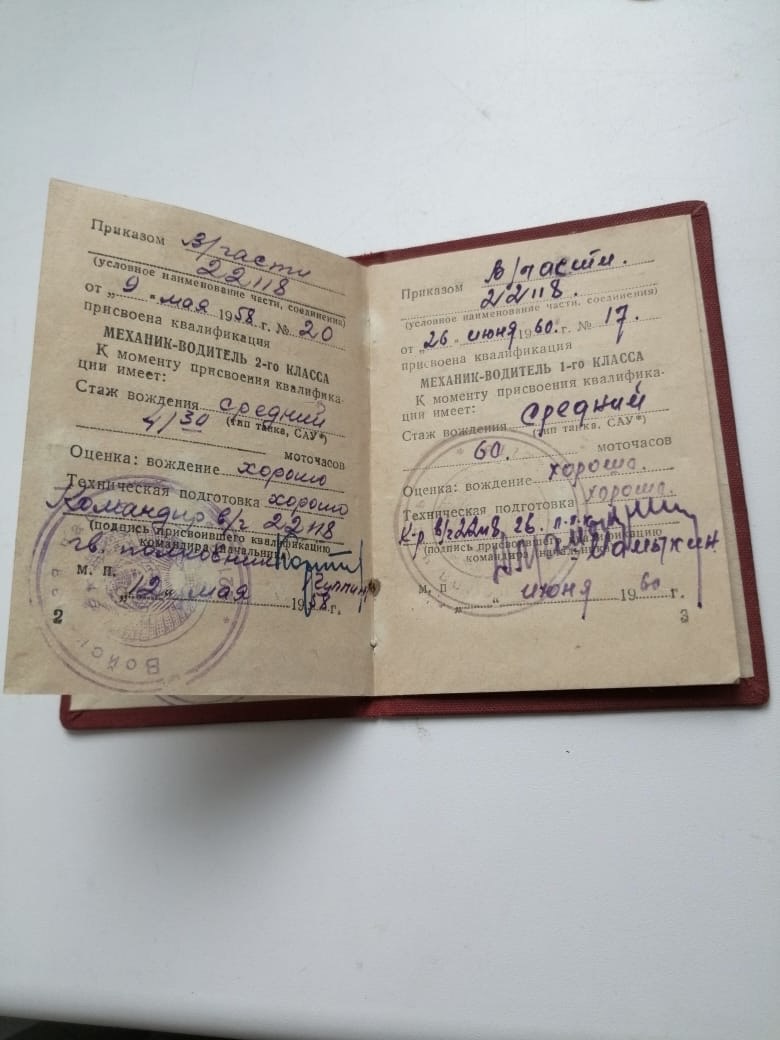 Приказом в/части
22118
(условное наименование части, соединения)
от „9" мая 1958 г. № 20
присвоена квалификация
МЕХАНИК-ВОДИТЕЛЬ 2-го КЛАССА
К моменту присвоения квалифика-
ции имеет:
Стаж вождения средний
(тип танка, САУ*)
моточасов
Оценка: вождение хорошо
Техническая подготовка хорошо
Командир в/ч 22118
(подпись присвоившего квалификацию
командира (начальника)
гв. полковник
М. П.
мая 1958 г.
2
Приказом в/части.
22118.
(условное наименование части, соединения)
от „26" июня 1960. г. № 17.
присвоена квалификация
МЕХАНИК-ВОДИТЕЛЬ 1-го КЛАССА
К моменту присвоения квалифика-
ции имеет:
Стаж вождения средний
(тип танка, САУ*)
60. моточасов
Оценка: вождение хорошо.
Техническая подготовка хорошо.
К-р в/ч 22118
(подпись присвоившего квалификацию
командира (начальника)
М. П.
„ " июня 1960 г.
3